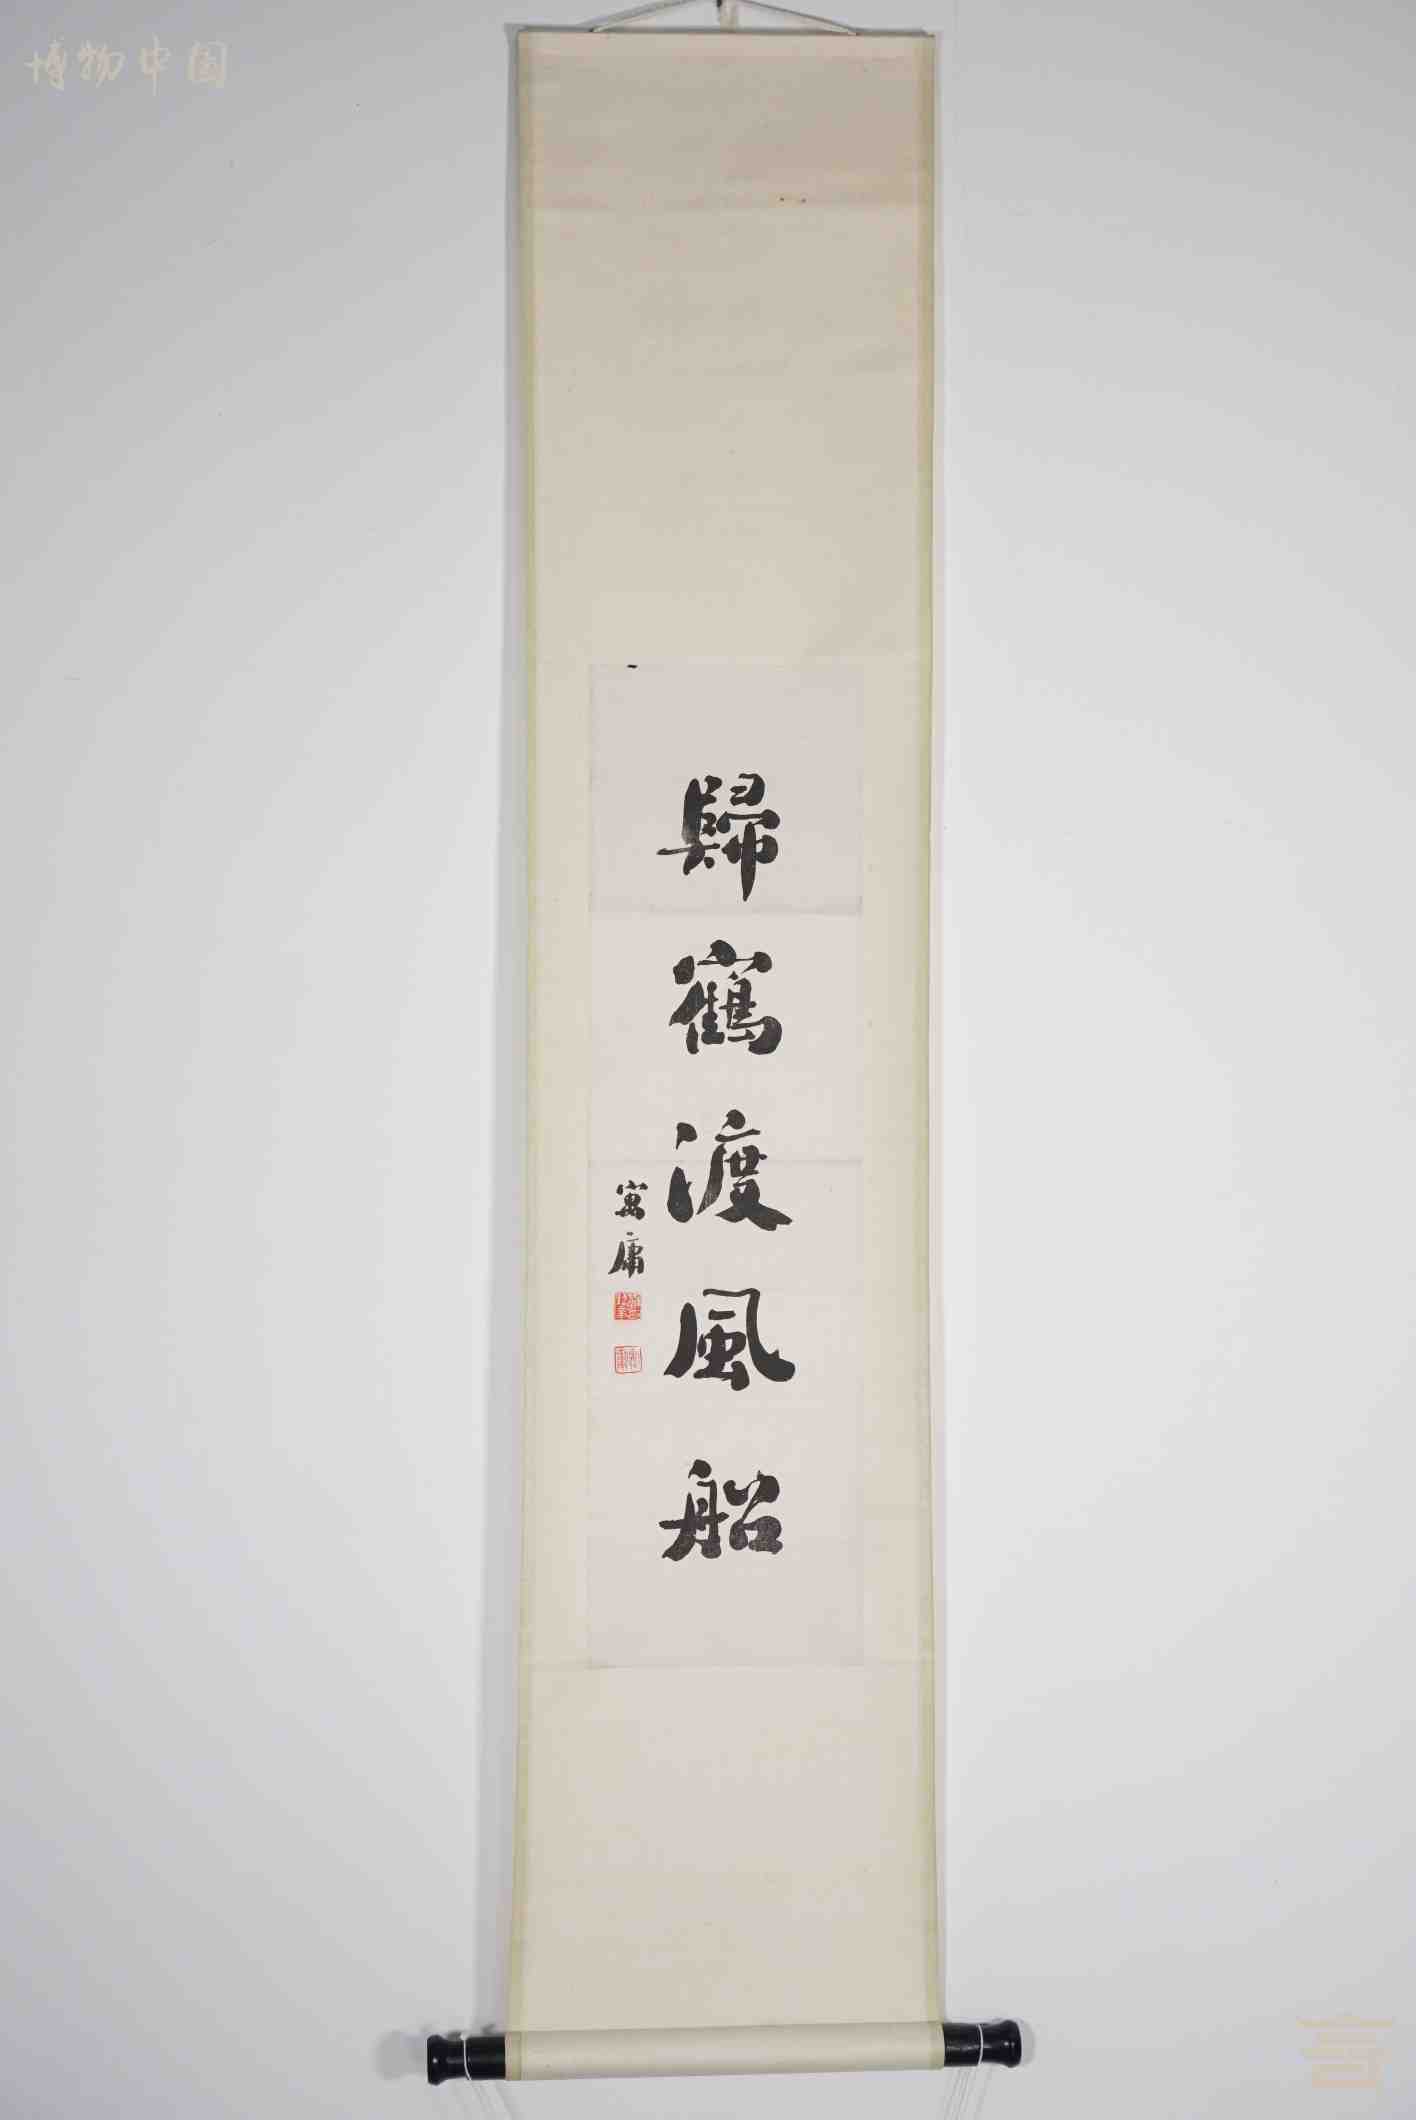 博物中国
歸鶴渡風船
寓庸